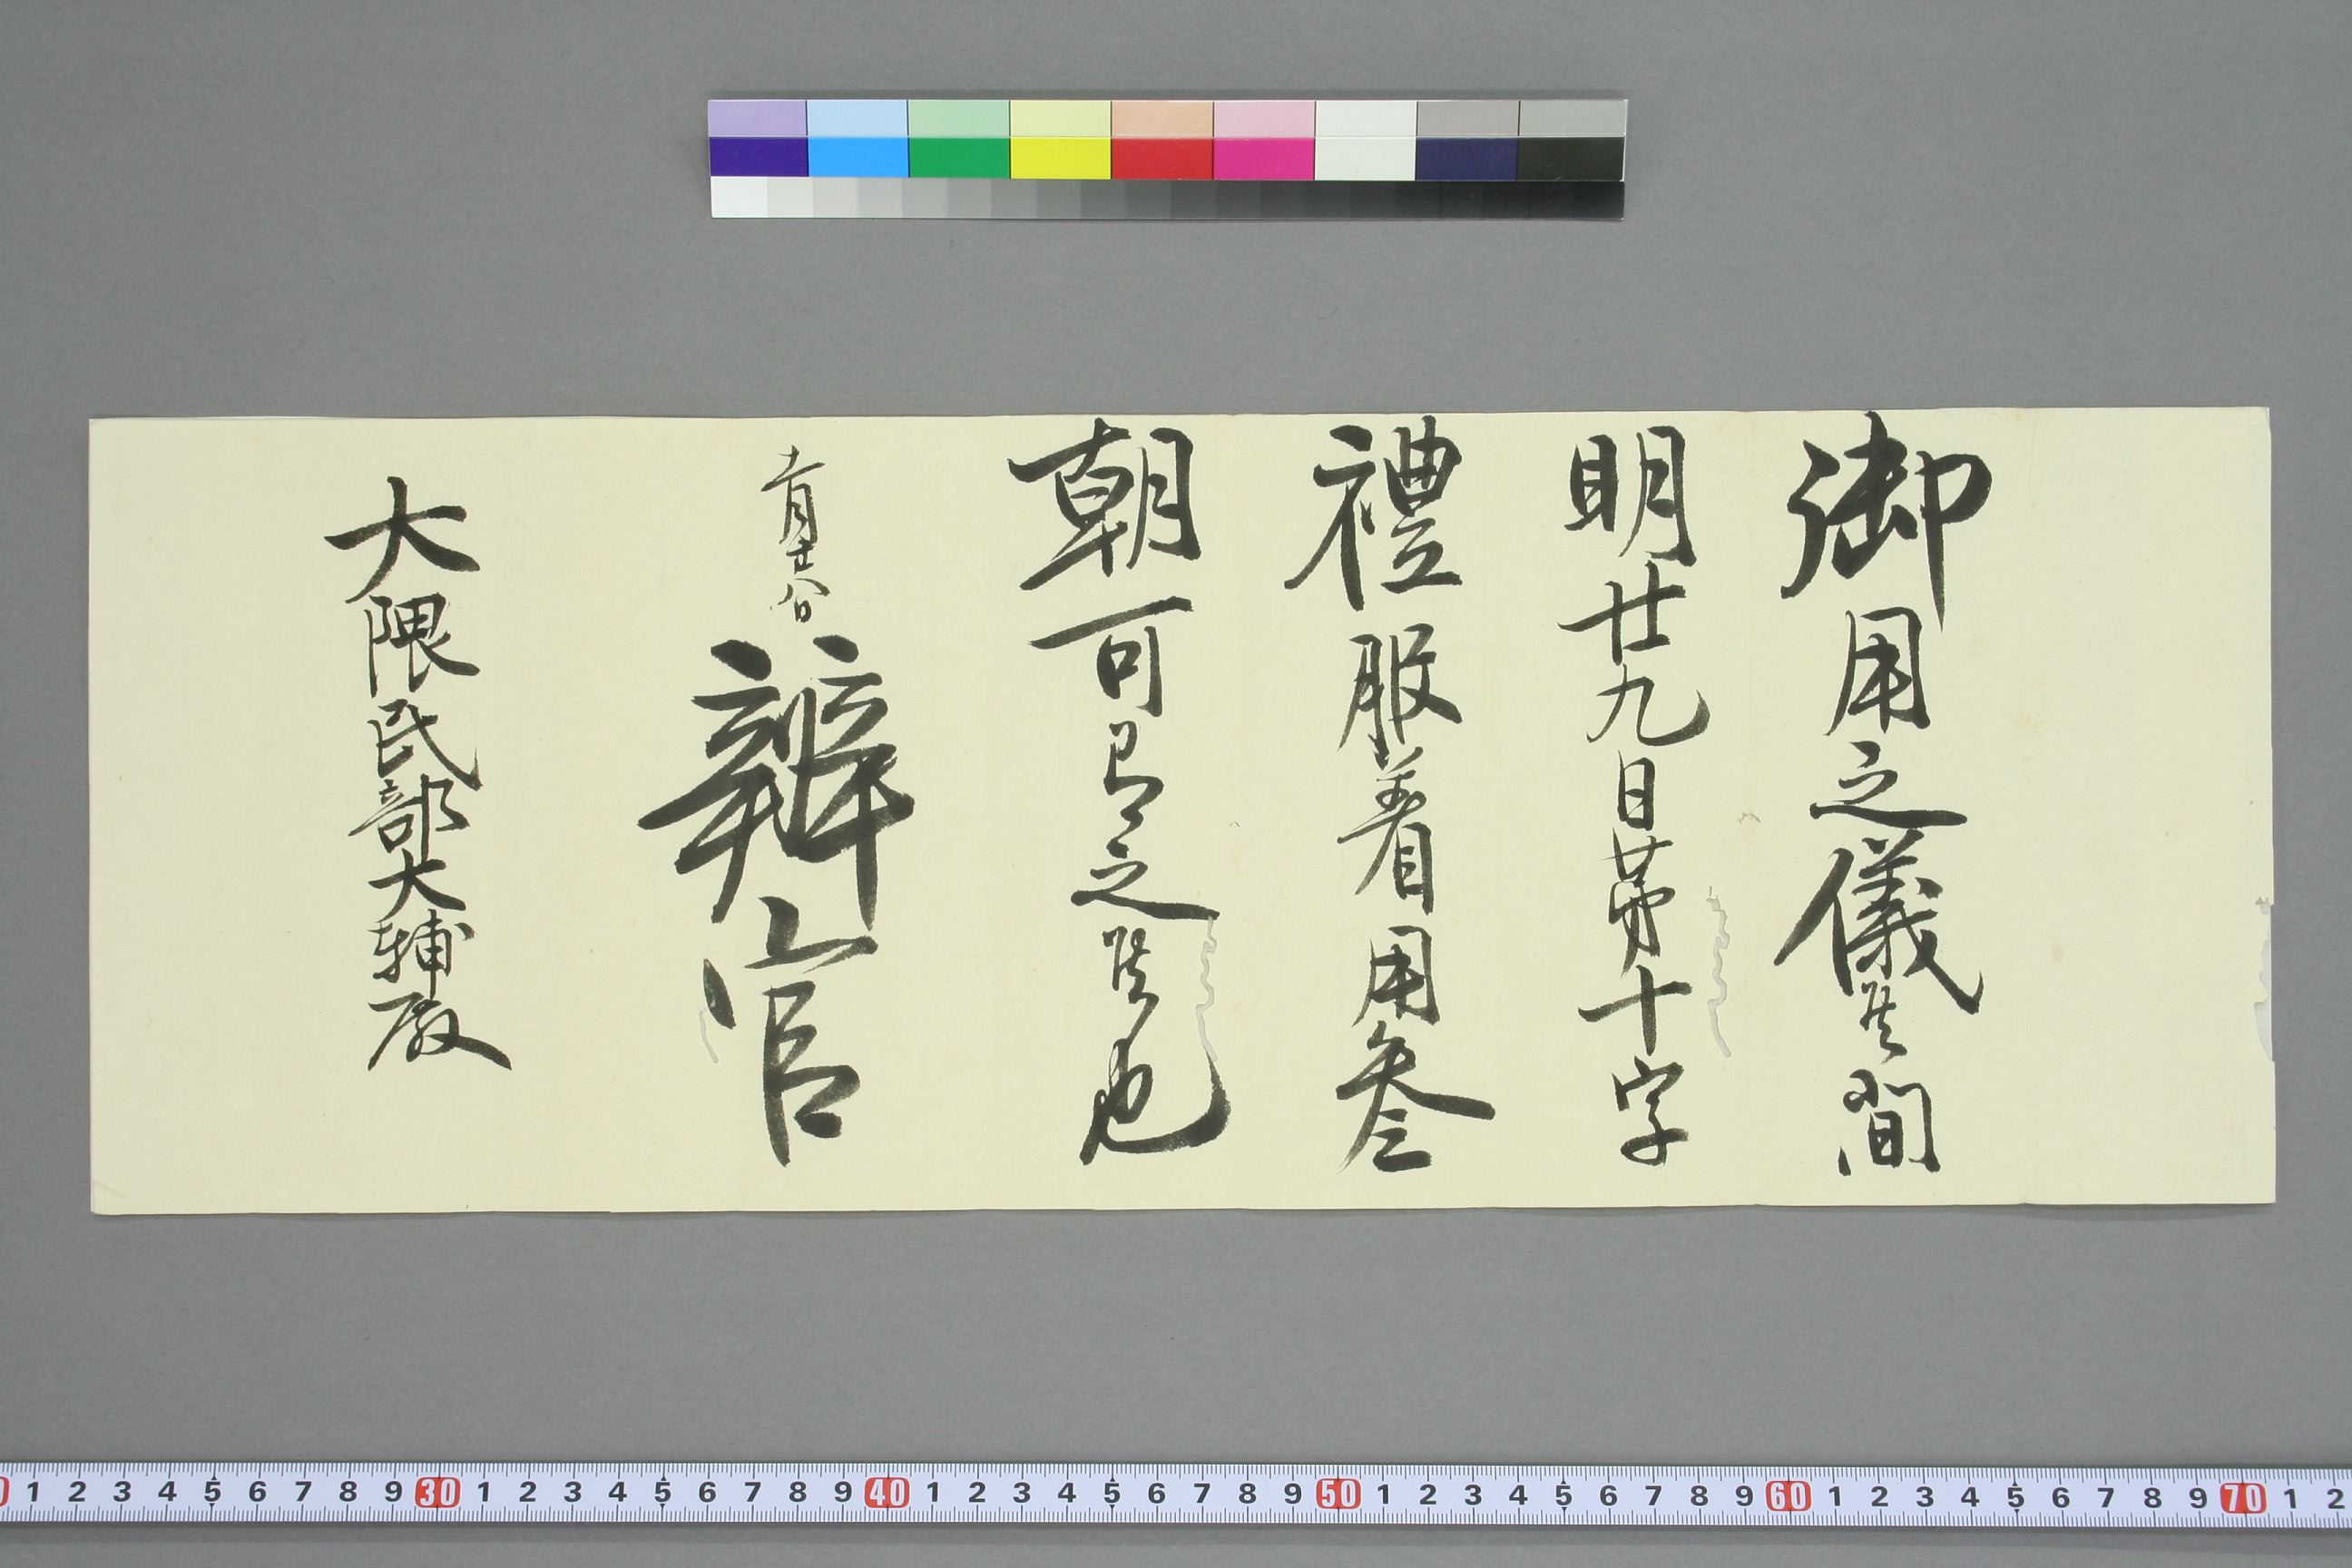 御用之儀候間
明廿九日第十字
禮服着用参
朝可有之候也
十一月廿八日
辨官
大隈民部大輔殿
0 1 2 3 4 5 6 7 8 9 30 1 2 3 4 5 6 7 8 9 40 1 2 3 4 5 6 7 8 9 50 1 2 3 4 5 6 7 8 9 60 1 2 3 4 5 6 7 8 9 70 1 2